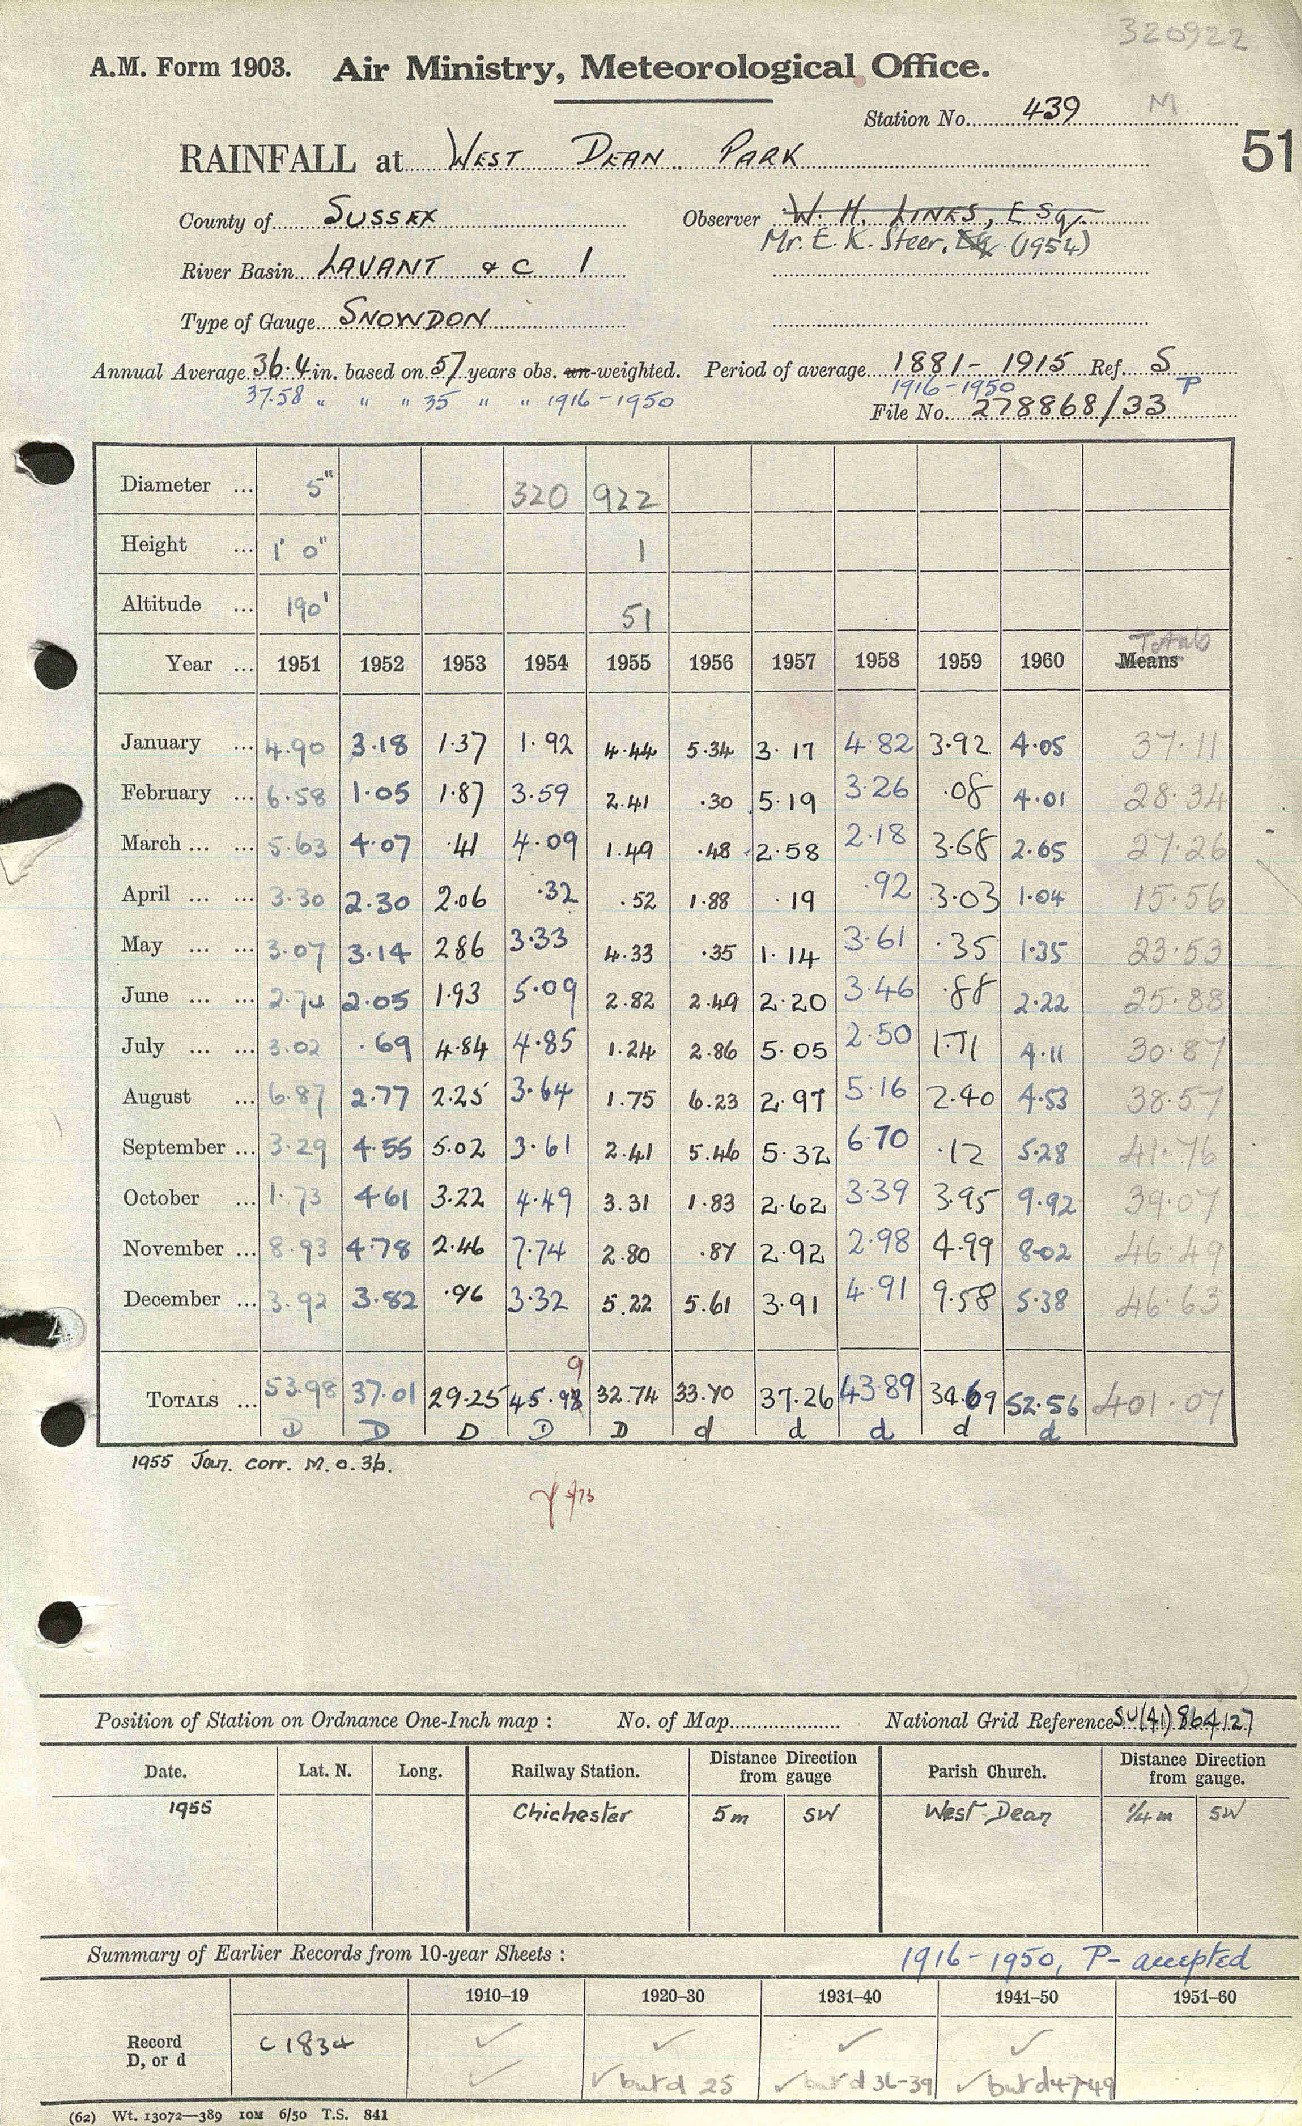 320922
A.M. Form 1903. Air Ministry, Meteorological Office.
Station No. 439 M
51
RAINFALL at West Dean Park
County of Sussex Observer W. H. Links, Esq.
Mr. E. K. Steer, Esq (1954)
River Basin Lavant & C 1
Type of Gauge Snowdon
Annual Average 36.4 in. based on 57 years obs. un-weighted. Period of average 1881-1915 Ref. S
37.58 " " " 35 " " 1916-1950 1916-1950 P
File No. 278868/33
Diameter ... 5" 320 922
Height ... 1' 0" 1
Altitude ... 190' 51
Totals
Year ... 1951 1952 1953 1954 1955 1956 1957 1958 1959 1960 Means
January ... 4.90 3.18 1.37 1.92 4.44 5.34 3.17 4.82 3.92 4.05 37.11
February ... 6.58 1.05 1.87 3.59 2.41 .30 5.19 3.26 .08 4.01 28.34
March ... ... 5.63 4.07 .41 4.09 1.49 .48 2.58 2.18 3.68 2.65 27.26
April ... ... 3.30 2.30 2.06 .32 .52 1.88 .19 .92 3.03 1.04 15.56
May ... ... 3.07 3.14 2.86 3.33 4.33 .35 1.14 3.61 .35 1.35 23.53
June ... ... 2.74 2.05 1.93 5.09 2.82 2.49 2.20 3.46 .88 2.22 25.88
July ... ... 3.02 .69 4.84 4.85 1.24 2.86 5.05 2.50 1.71 4.11 30.87
August ... 6.87 2.77 2.25 3.64 1.75 6.23 2.97 5.16 2.40 4.53 38.57
September ... 3.29 4.55 5.02 3.61 2.41 5.46 5.32 6.70 .12 5.28 41.76
October ... 1.73 4.61 3.22 4.49 3.31 1.83 2.62 3.39 3.95 9.92 39.07
November ... 8.93 4.78 2.46 7.74 2.80 .87 2.92 2.98 4.99 8.02 46.49
December ... 3.92 3.82 .96 3.32 5.22 5.61 3.91 4.91 9.58 5.38 46.63
9
Totals ... 53.98 37.01 29.25 45.98 32.74 33.70 37.26 43.89 34.69 52.56 401.07
D D D D D d d d d d
1955 Jan. corr. M.O.3b.
Position of Station on Ordnance One-Inch map : No. of Map National Grid Reference SU(41) 864127
Date. Lat. N. Long. Railway Station. Distance Direction from gauge Parish Church. Distance Direction from gauge.
1955 Chichester 5m SW West Dean 1/4 m SW
Summary of Earlier Records from 10-year Sheets : 1916-1950, P- accepted
1910–19 1920–30 1931–40 1941–50 1951–60
Record D, or d c 1834 ✓ ✓ ✓ ✓
✓ ✓ but d 25 ✓ but d 36-39 ✓ but d 47-49
(62) Wt. 13072—389 10M 6/50 T.S. 841